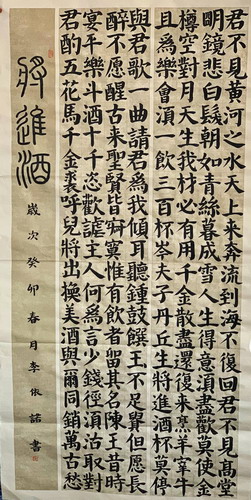 君不見黃河之水天上來奔流到海不復回君不見高堂
明鏡悲白髮朝如青絲暮成雪人生得意湏盡歡莫使金
樽空對月天生我材必有用千金散盡還復來烹羊宰牛
且為樂會湏一飲三百杯岑夫子丹丘生將進酒杯莫停
與君歌一曲請君為我傾耳聽鍾鼓饌玉不足貴但愿長
醉不愿醒古來聖賢皆寂寞惟有飲者留其名陳王昔時
宴平樂斗酒十千恣歡謔主人何為言少錢徑湏沽取對
君酌五花馬千金裘呼兒將出換美酒與爾同銷萬古愁
將進酒
歲次癸卯春月李依諾書